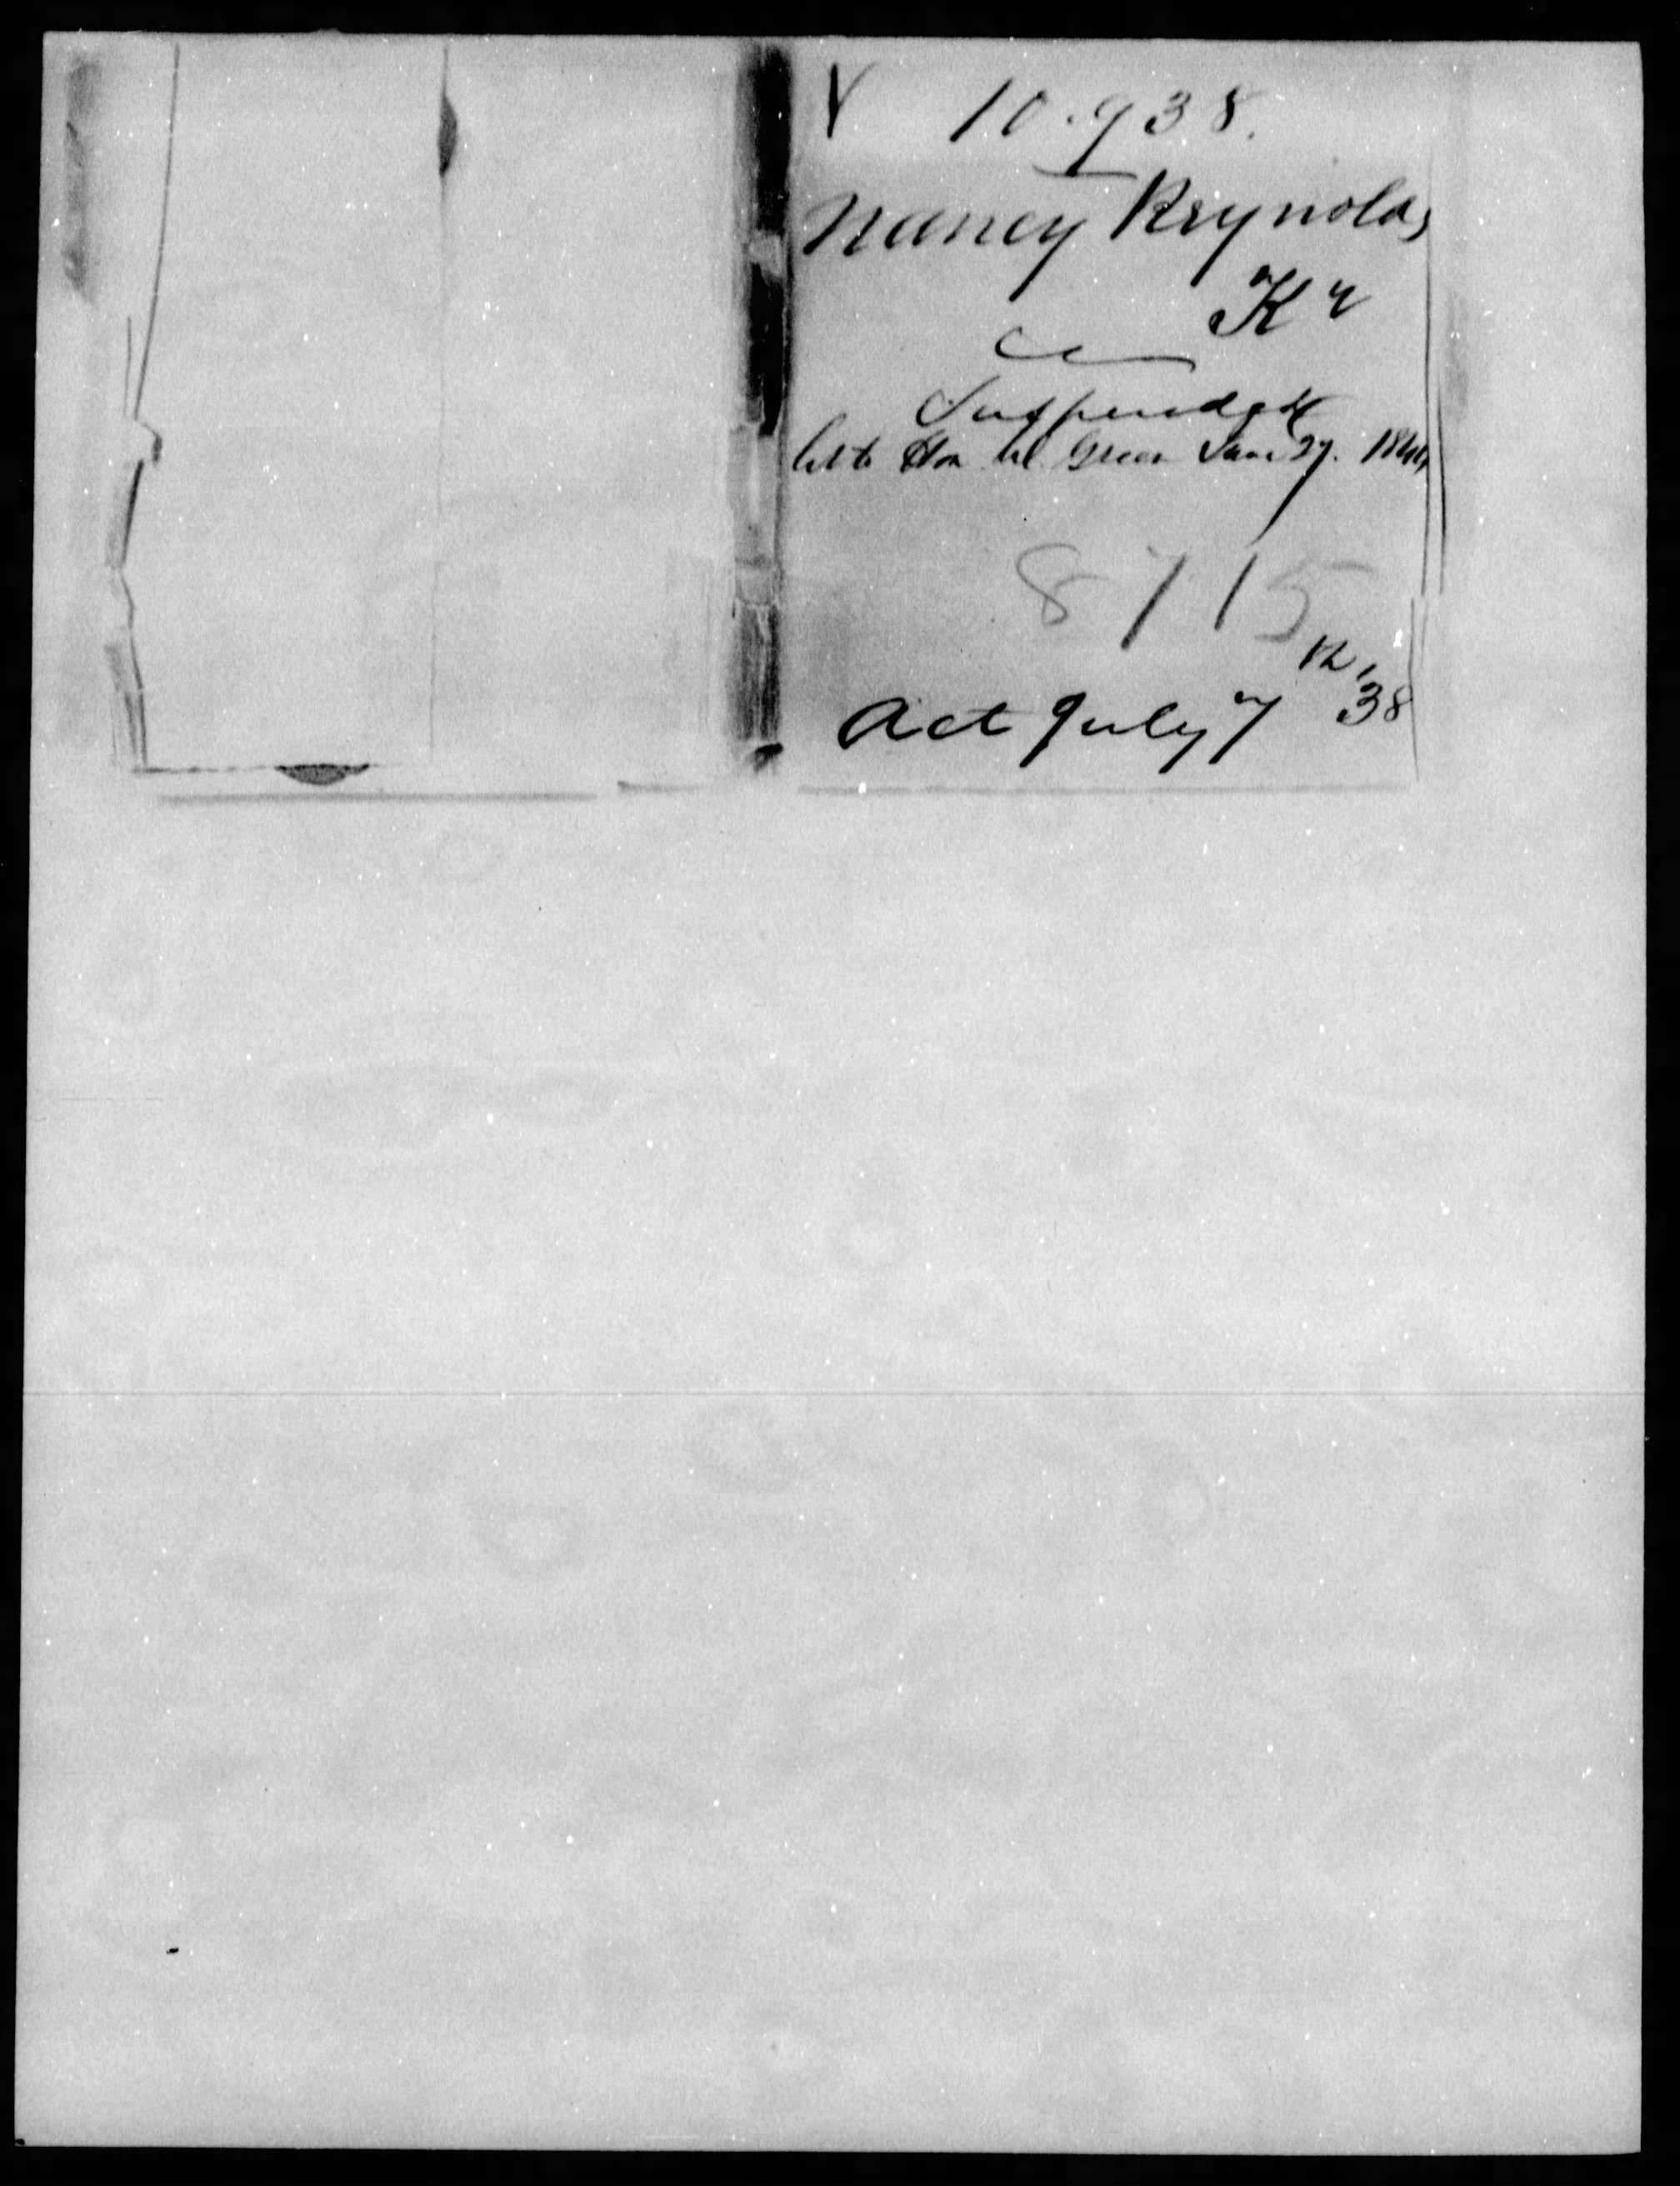 V 10.938.
Nancy Reynolds
Ky
Suspended
let to Hon W. Green June 27. 1844
8715
Act July 7th '38